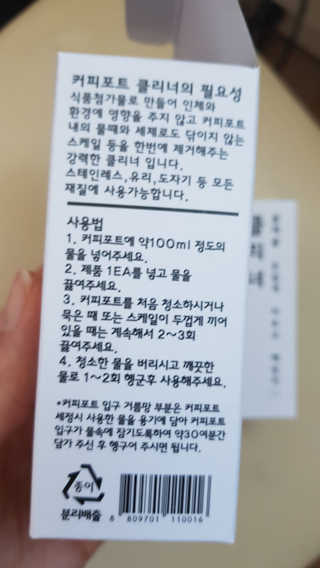 커피포트 클리너의 필요성
식품첨가물로 만들어 인체와
환경에 영향을 주지 않고 커피포트
내의 물때와 세제로도 닦이지 않는
스케일 등을 한번에 제거해주는
강력한 클리너 입니다.
스테인레스,유리,도자기 등 모든
재질에 사용가능합니다.
사용법
1. 커피포트에 약100ml 정도의
물을 넣어주세요.
2. 제품 1EA를 넣고 물을
끓여주세요.
3. 커피포트를 처음 청소하시거나
묵은 때 또는 스케일이 두껍게 끼어
있을 때는 계속해서 2~3회
끓여주세요.
4. 청소한 물을 버리시고 깨끗한
물로 1~2회 헹군후 사용해주세요.
*커피포트 입구 거름망 부분은 커피포트
세정시 사용한 물을 용기에 담아 커피포트
입구가 물속에 잠기도록하여 약30여분간
담가 주신 후 헹구어 주시면 됩니다.
종이
분리배출
8 809701 110016
클리너